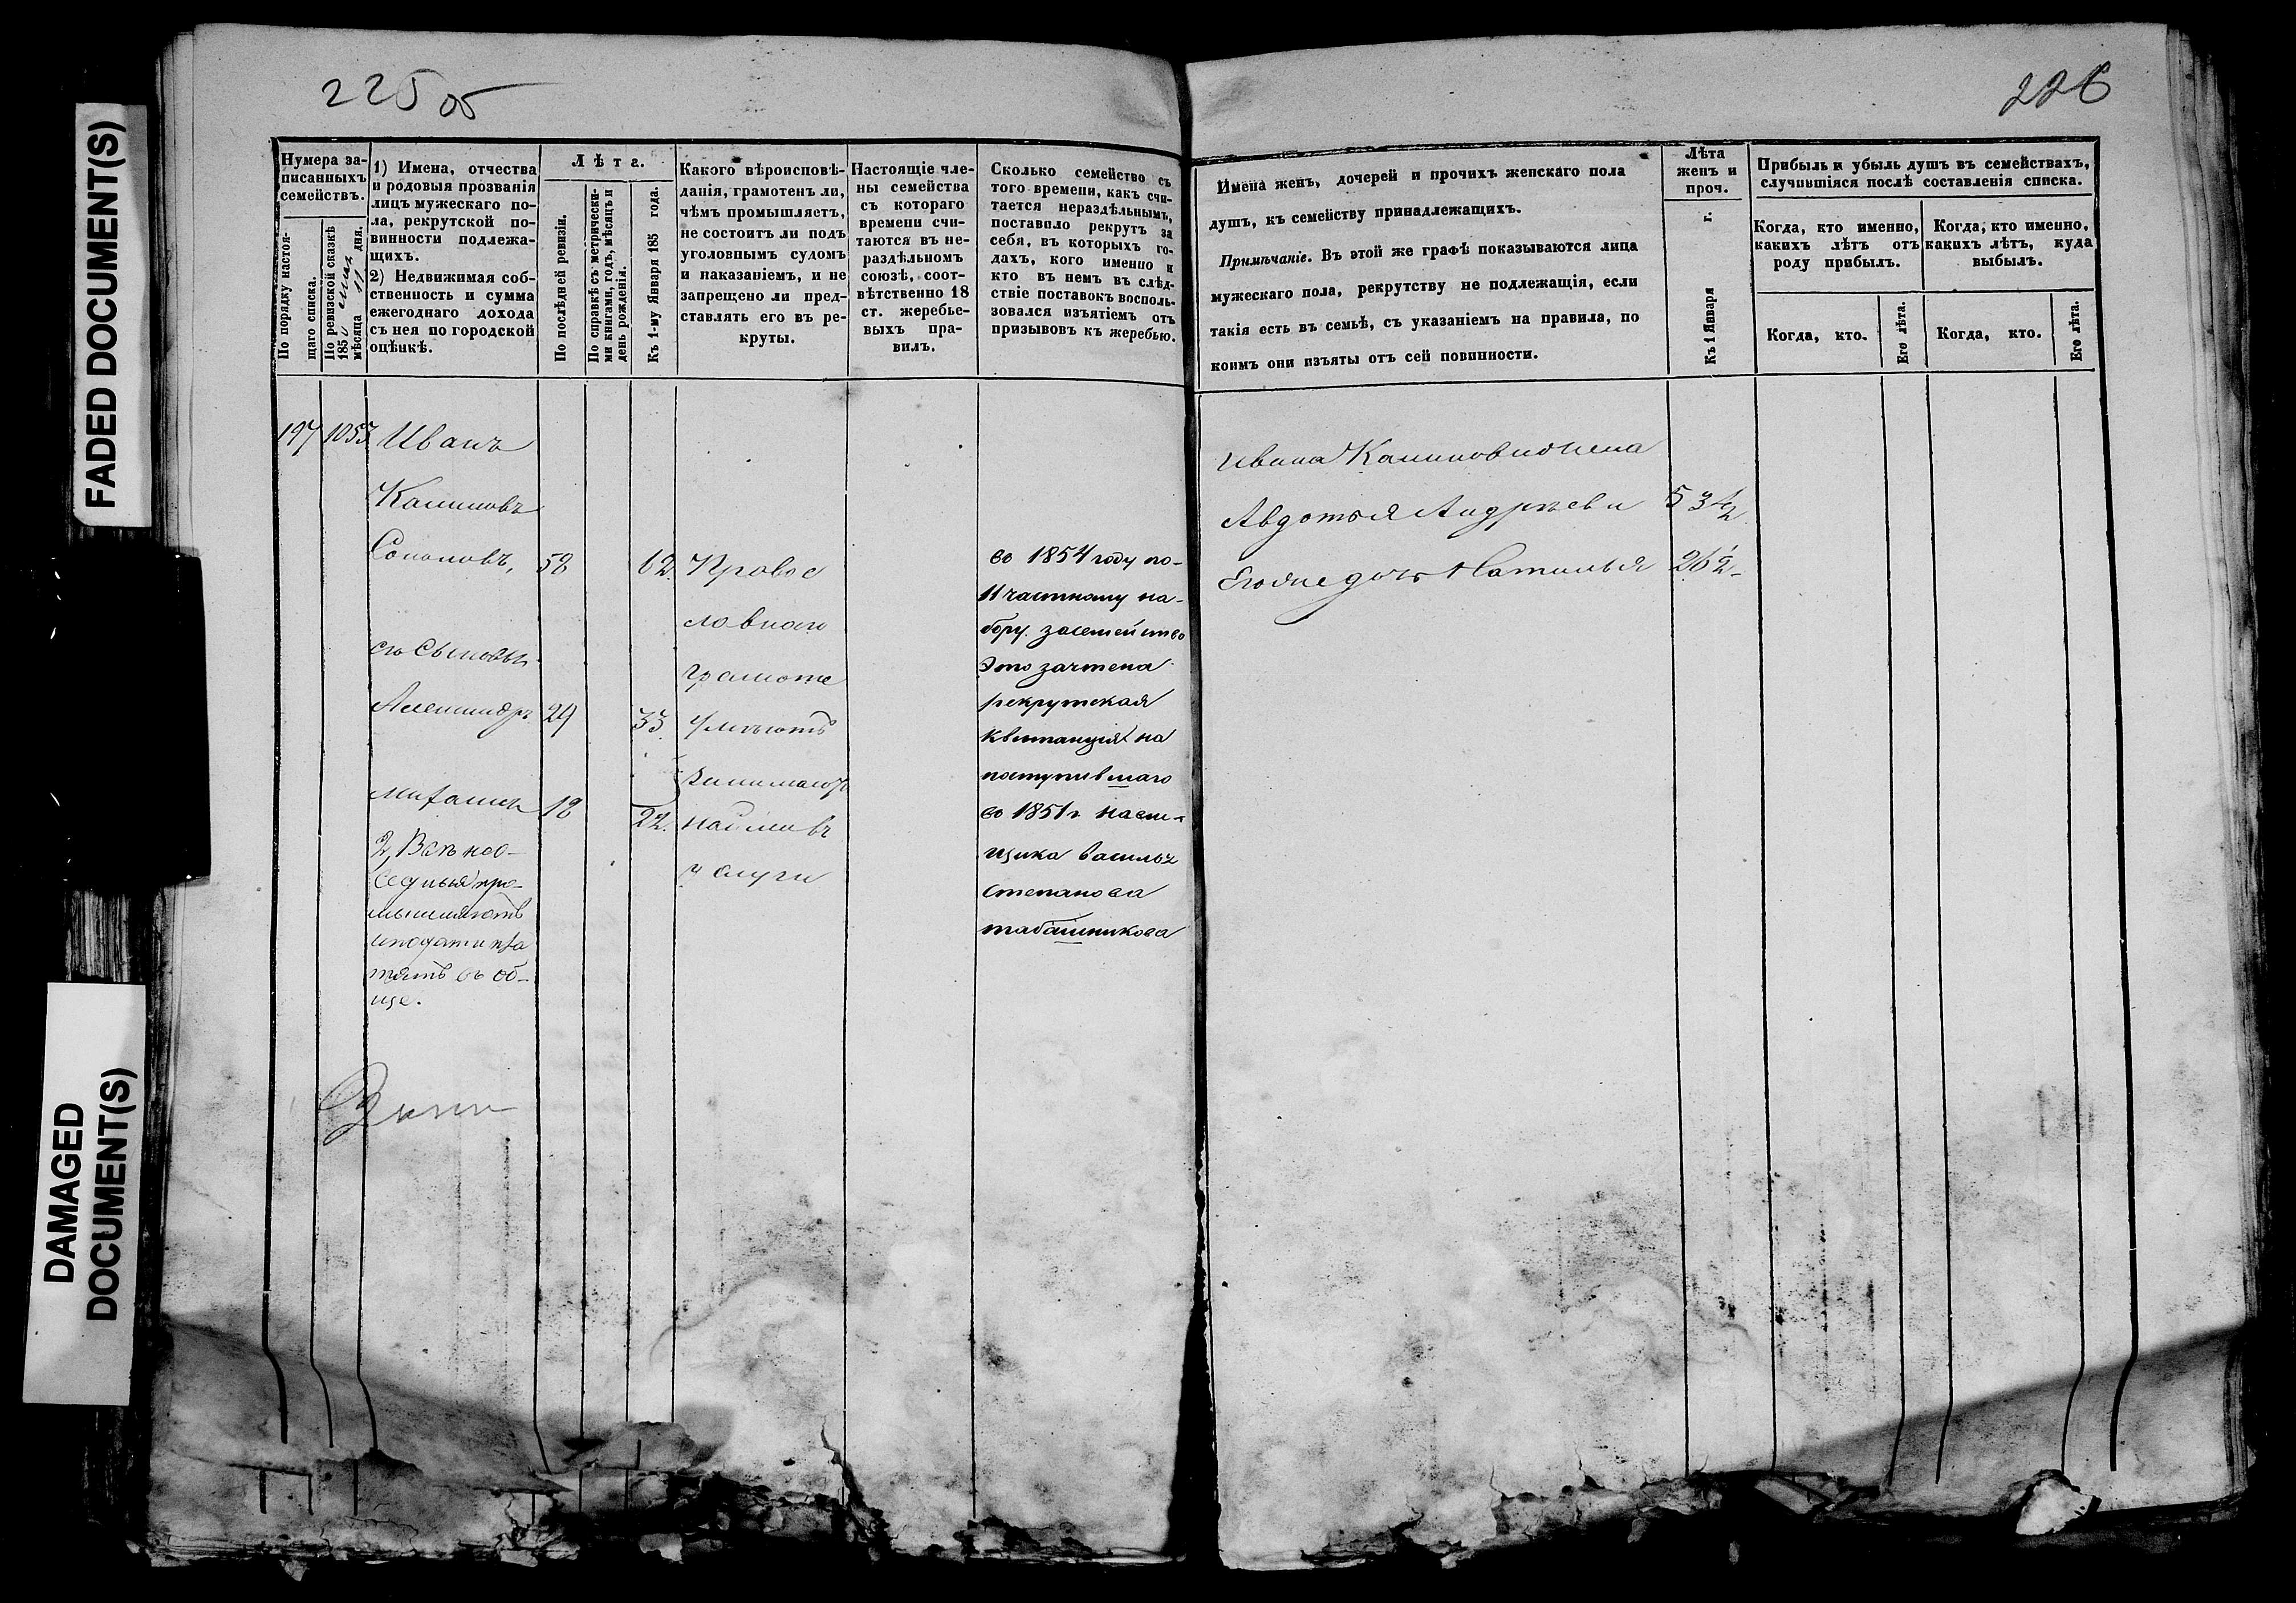 FADED DOCUMENT(S)
DAMAGED
DOCUMENT(S)
225 об
Нумера за-
писанныхъ
семействъ.
По порядку настоя-
щаго списка.
По ревизской сказкѣ
1850
мѣсяца 11 дня.
1) Имена, отчества
и родовыя прозванія
лицъ мужескаго по-
ла, рекрутской по-
винности подлежа-
щихъ.
2) Недвижимая соб-
ственность и сумма
ежегоднаго дохода
съ нея по городской
оцѣнкѣ.
Лѣта.
По послѣдней ревизіи.
По справкѣ съ метрически-
ми книгами, годъ, мѣсяцъ и
день рожденія.
Къ 1-му Января 185 года.
Какого вѣроисповѣ-
данія, грамотенъ ли,
чѣмъ промышляетъ,
не состоитъ ли подъ
уголовнымъ судомъ
и наказаніемъ, и не
запрещено ли пред-
ставлять его въ ре-
круты.
Настоящіе чле-
ны семейства
съ котораго
времени счи-
таются въ не-
раздѣльномъ
союзѣ, соот-
вѣтственно 18
ст. жеребье-
выхъ пра-
вилъ.
Сколько семейство съ
того времени, какъ счи-
тается нераздѣльнымъ,
поставило рекрутъ за
себя, въ которыхъ го-
дахъ, кого именно и
кто въ немъ въ слѣд-
ствіе поставокъ восполь-
зовался изъятіемъ отъ
призывовъ къ жеребью.
197 1053 Иванъ
Калиновъ
Соколовъ, 58 62.
съ Сыновьи
Александръ 29 33.
Михаилъ 18 22.
2, Всѣ нео-
седлыя про-
мышляютъ
и подати пла
тятъ въ об-
ще.
Правос
лавнаго
грамоте
умѣютъ
Занимают
наймъ въ
услуги
во 1854 году по-
11 частному на-
бору. за семейство
Это зачтена
рекрутская
квитанція на
поступившаго
во 1851 г. наем-
щика Василья
Степанова
табашникова
226
Имена женъ, дочерей и прочихъ женскаго пола
душъ, къ семейству принадлежащихъ.
Примѣчаніе. Въ этой же графѣ показываются лица
мужескаго пола, рекрутству не подлежащія, если
такія есть въ семьѣ, съ указаніемъ на правила, по
коимъ они изъяты отъ сей повинности.
Лѣта
женъ и
проч.
Къ 1 Января г.
Прибыль и убыль душъ въ семействахъ,
случившіяся послѣ составленія списка.
Когда, кто именно,
какихъ лѣтъ отъ
роду прибылъ.
Когда, кто именно,
какихъ лѣтъ, куда
выбылъ.
Когда, кто.
Его лѣта.
Когда, кто.
Его лѣта.
Ивана Калинова жена
Авдотья Андреева 53 1/2
Его же дочь Наталья 26 1/2